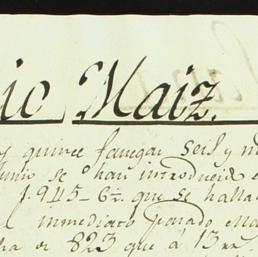 io Maiz.
quince fanegas seis y m
Junio se han introducido e
1.945-6 que se halla
l inmediato pasado Ma
de 823 que à 13 rr